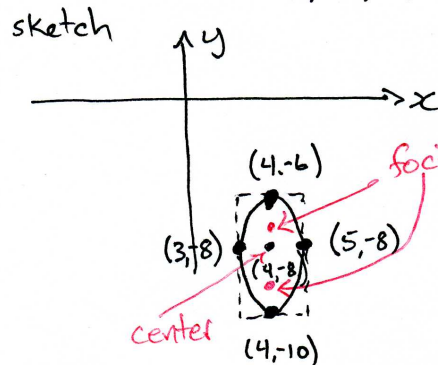 sketch
y
x
(4,-6)
foci
(3,-8)
(5,-8)
(4,-8
center
(4,-10)